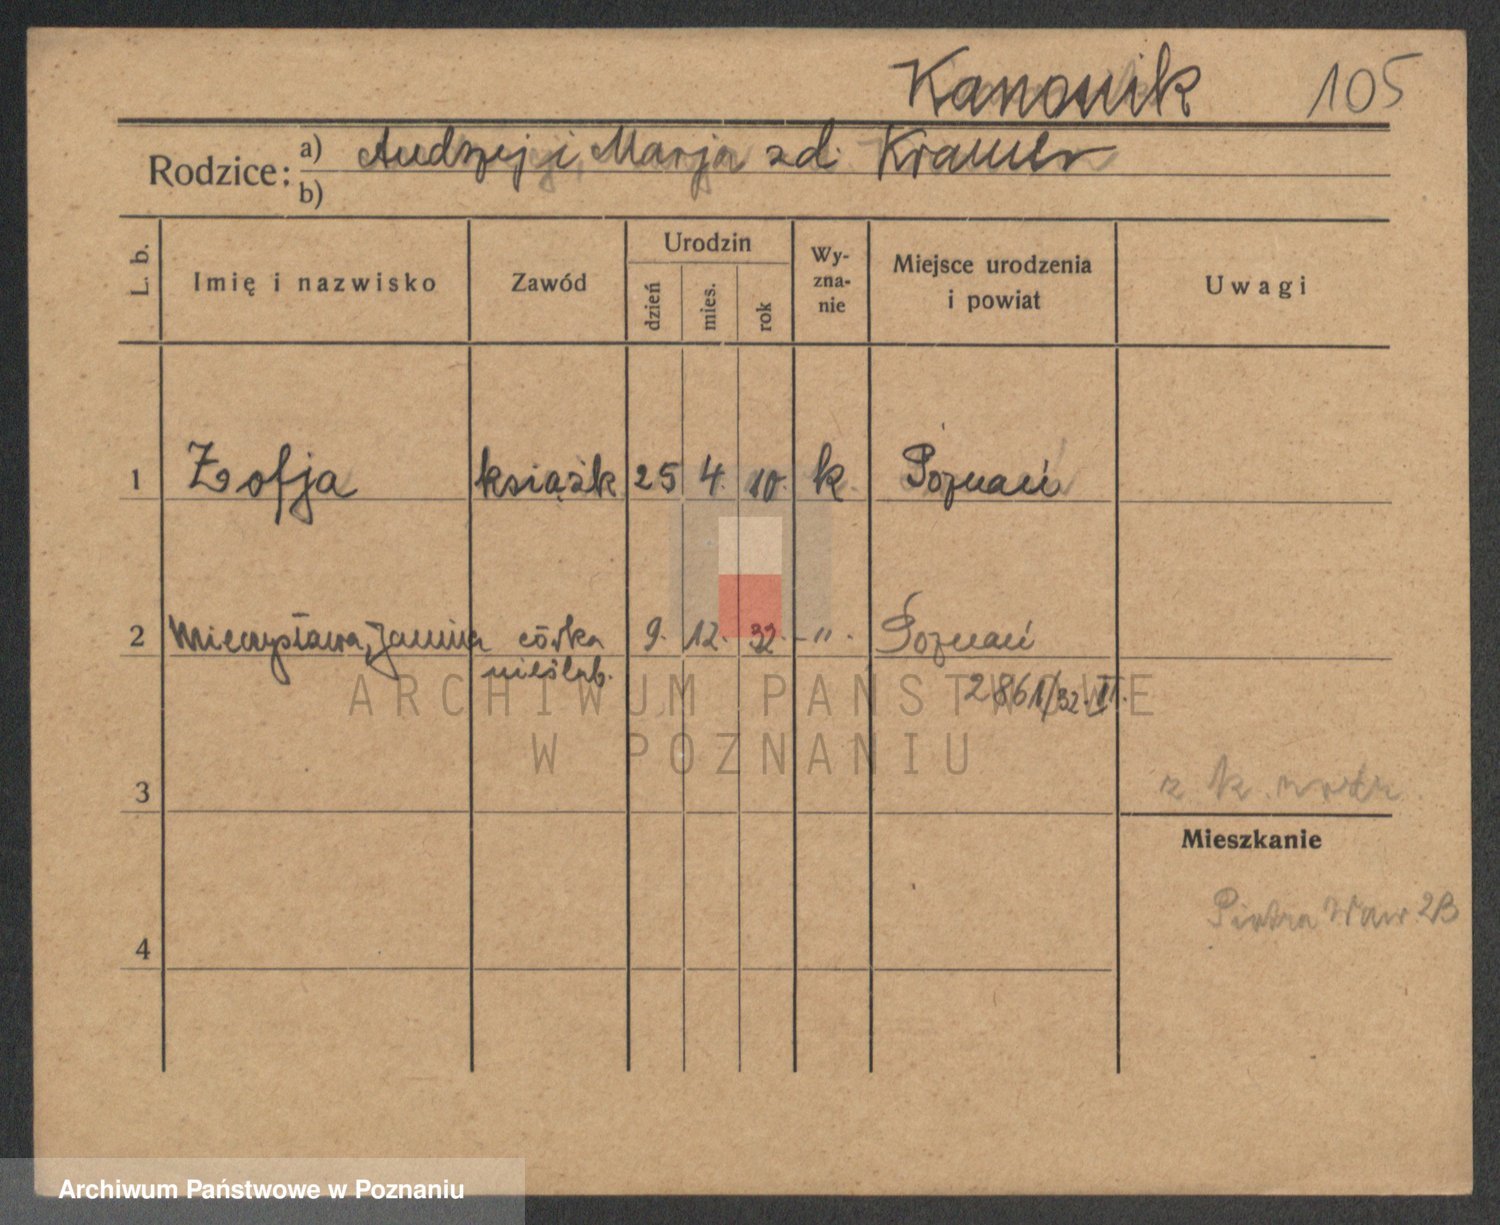 Kanonik 105
Rodzice: a) Andrzej i Marja zd. Kramer
b)
L. b. Imię i nazwisko Zawód Urodzin dzień mies. rok Wy-zna-nie Miejsce urodzenia i powiat Uwagi
1 Zofja książk 25 4. 10. k. Poznań
2 Mieczysława, Janina córka 9. 12. 32. " . Poznań
nieślub. 2861/32. II.
ARCHIWUM PAŃSTWOWE
W POZNANIU
3 z k.
Mieszkanie
Piotra Waw 2B
4
Archiwum Państwowe w Poznaniu